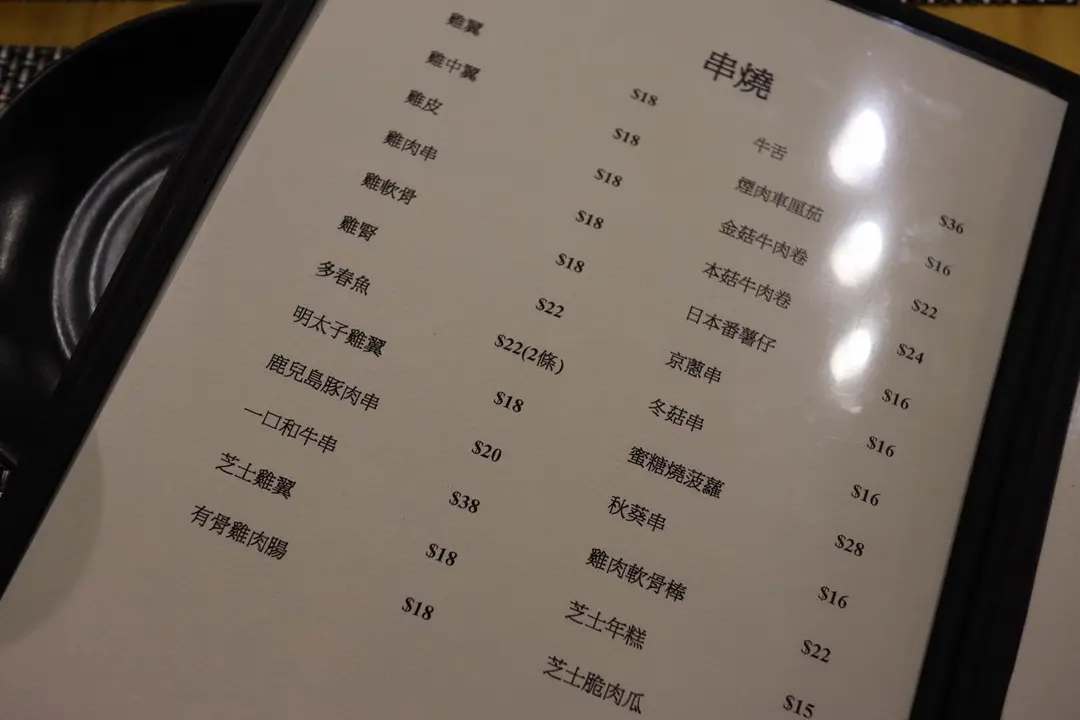 串燒
雞翼 $18
雞中翼 $18
雞皮 $18
雞肉串 $18
雞軟骨 $18
雞腎 $22
多春魚 $22(2條)
明太子雞翼 $18
鹿兒島豚肉串 $20
一口和牛串 $38
芝士雞翼 $18
有骨雞肉腸 $18
牛舌 $36
煙肉車厘茄 $16
金菇牛肉卷 $22
本菇牛肉卷 $24
日本番薯仔 $16
京蔥串 $16
冬菇串 $16
蜜糖燒菠蘿 $28
秋葵串 $16
雞肉軟骨棒 $22
芝士年糕 $15
芝士脆肉瓜